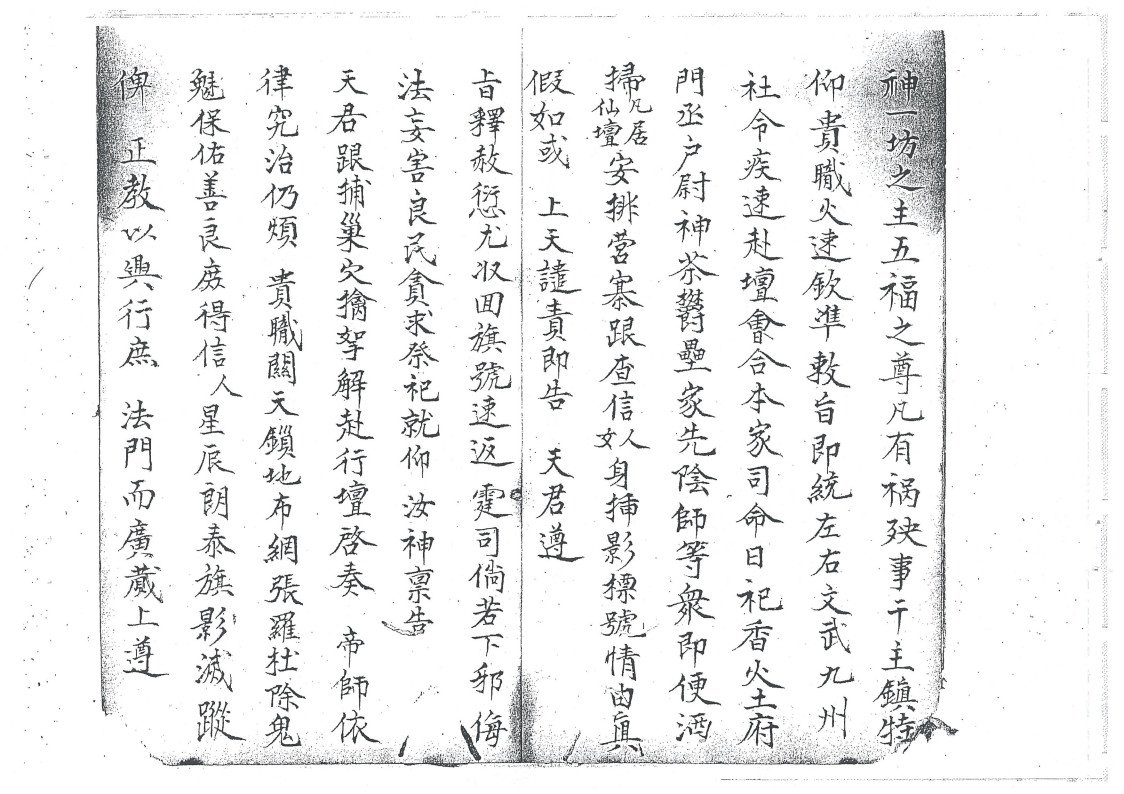 神一坊之主五福之尊凡有禍殃事干主鎮特
仰貴職火速欽準敕旨即統左右文武九州
社令疾速赴壇會合本家司命日祀香火土府
門丞户尉神茶欝壘家先陰師等衆即便洒
掃凡居仙壇安排营寨跟查信人女身揷影摽號情由眞
假如或 上天譴責即告 天君遵
旨釋赦愆尤収囬旗號速返 霆司倘若下邪侮
法妄害良民貪求祭祀就仰 汝神禀告
天君跟捕巢穴擒拏解赴行壇啓奏 帝師依
律究治仍煩 貴職闗天鎖地布網張羅杜除鬼
魅保佑善良庻得信人星辰朗泰旗影滅蹤
俾 正教以興行庶 法門而廣藏上遵